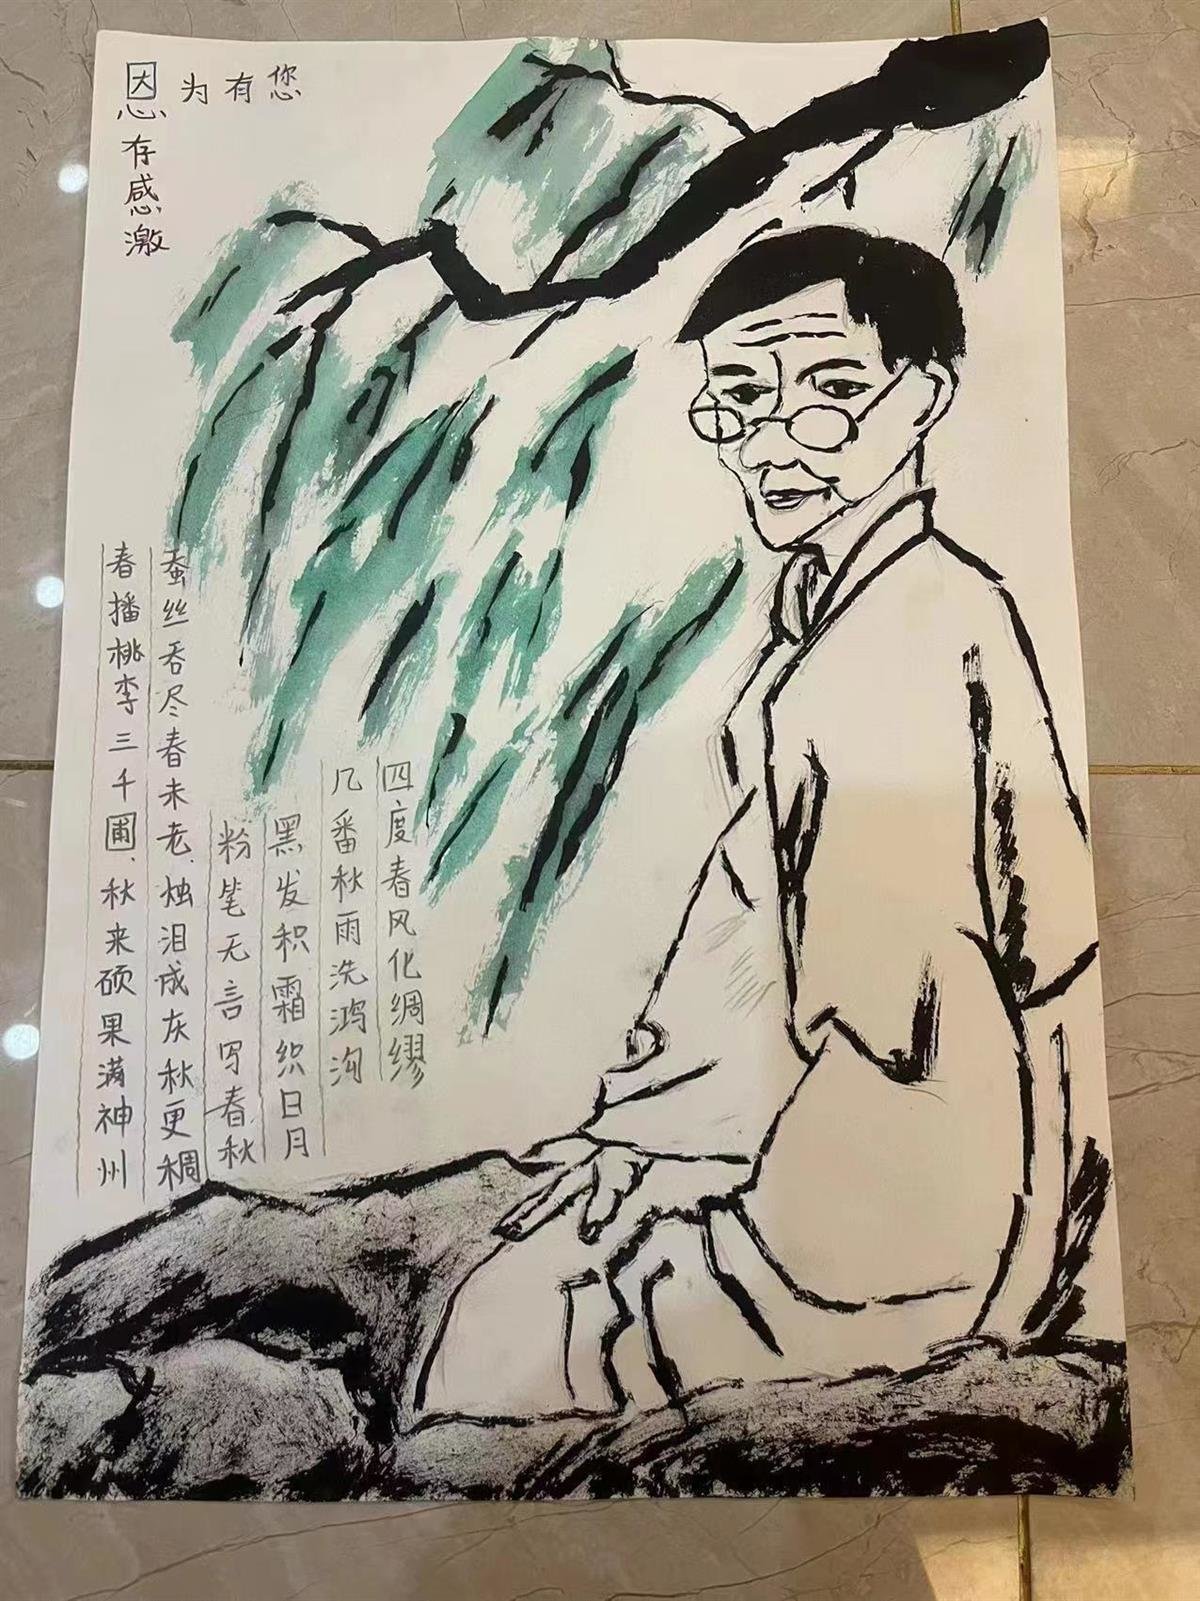 因为有您
心存感激
四度春风化绸缪
几番秋雨洗鸿沟
黑发积霜织日月
粉笔无言写春秋
蚕丝吞尽春未老、烛泪成灰秋更稠
春播桃李三千圃、秋来硕果满神州